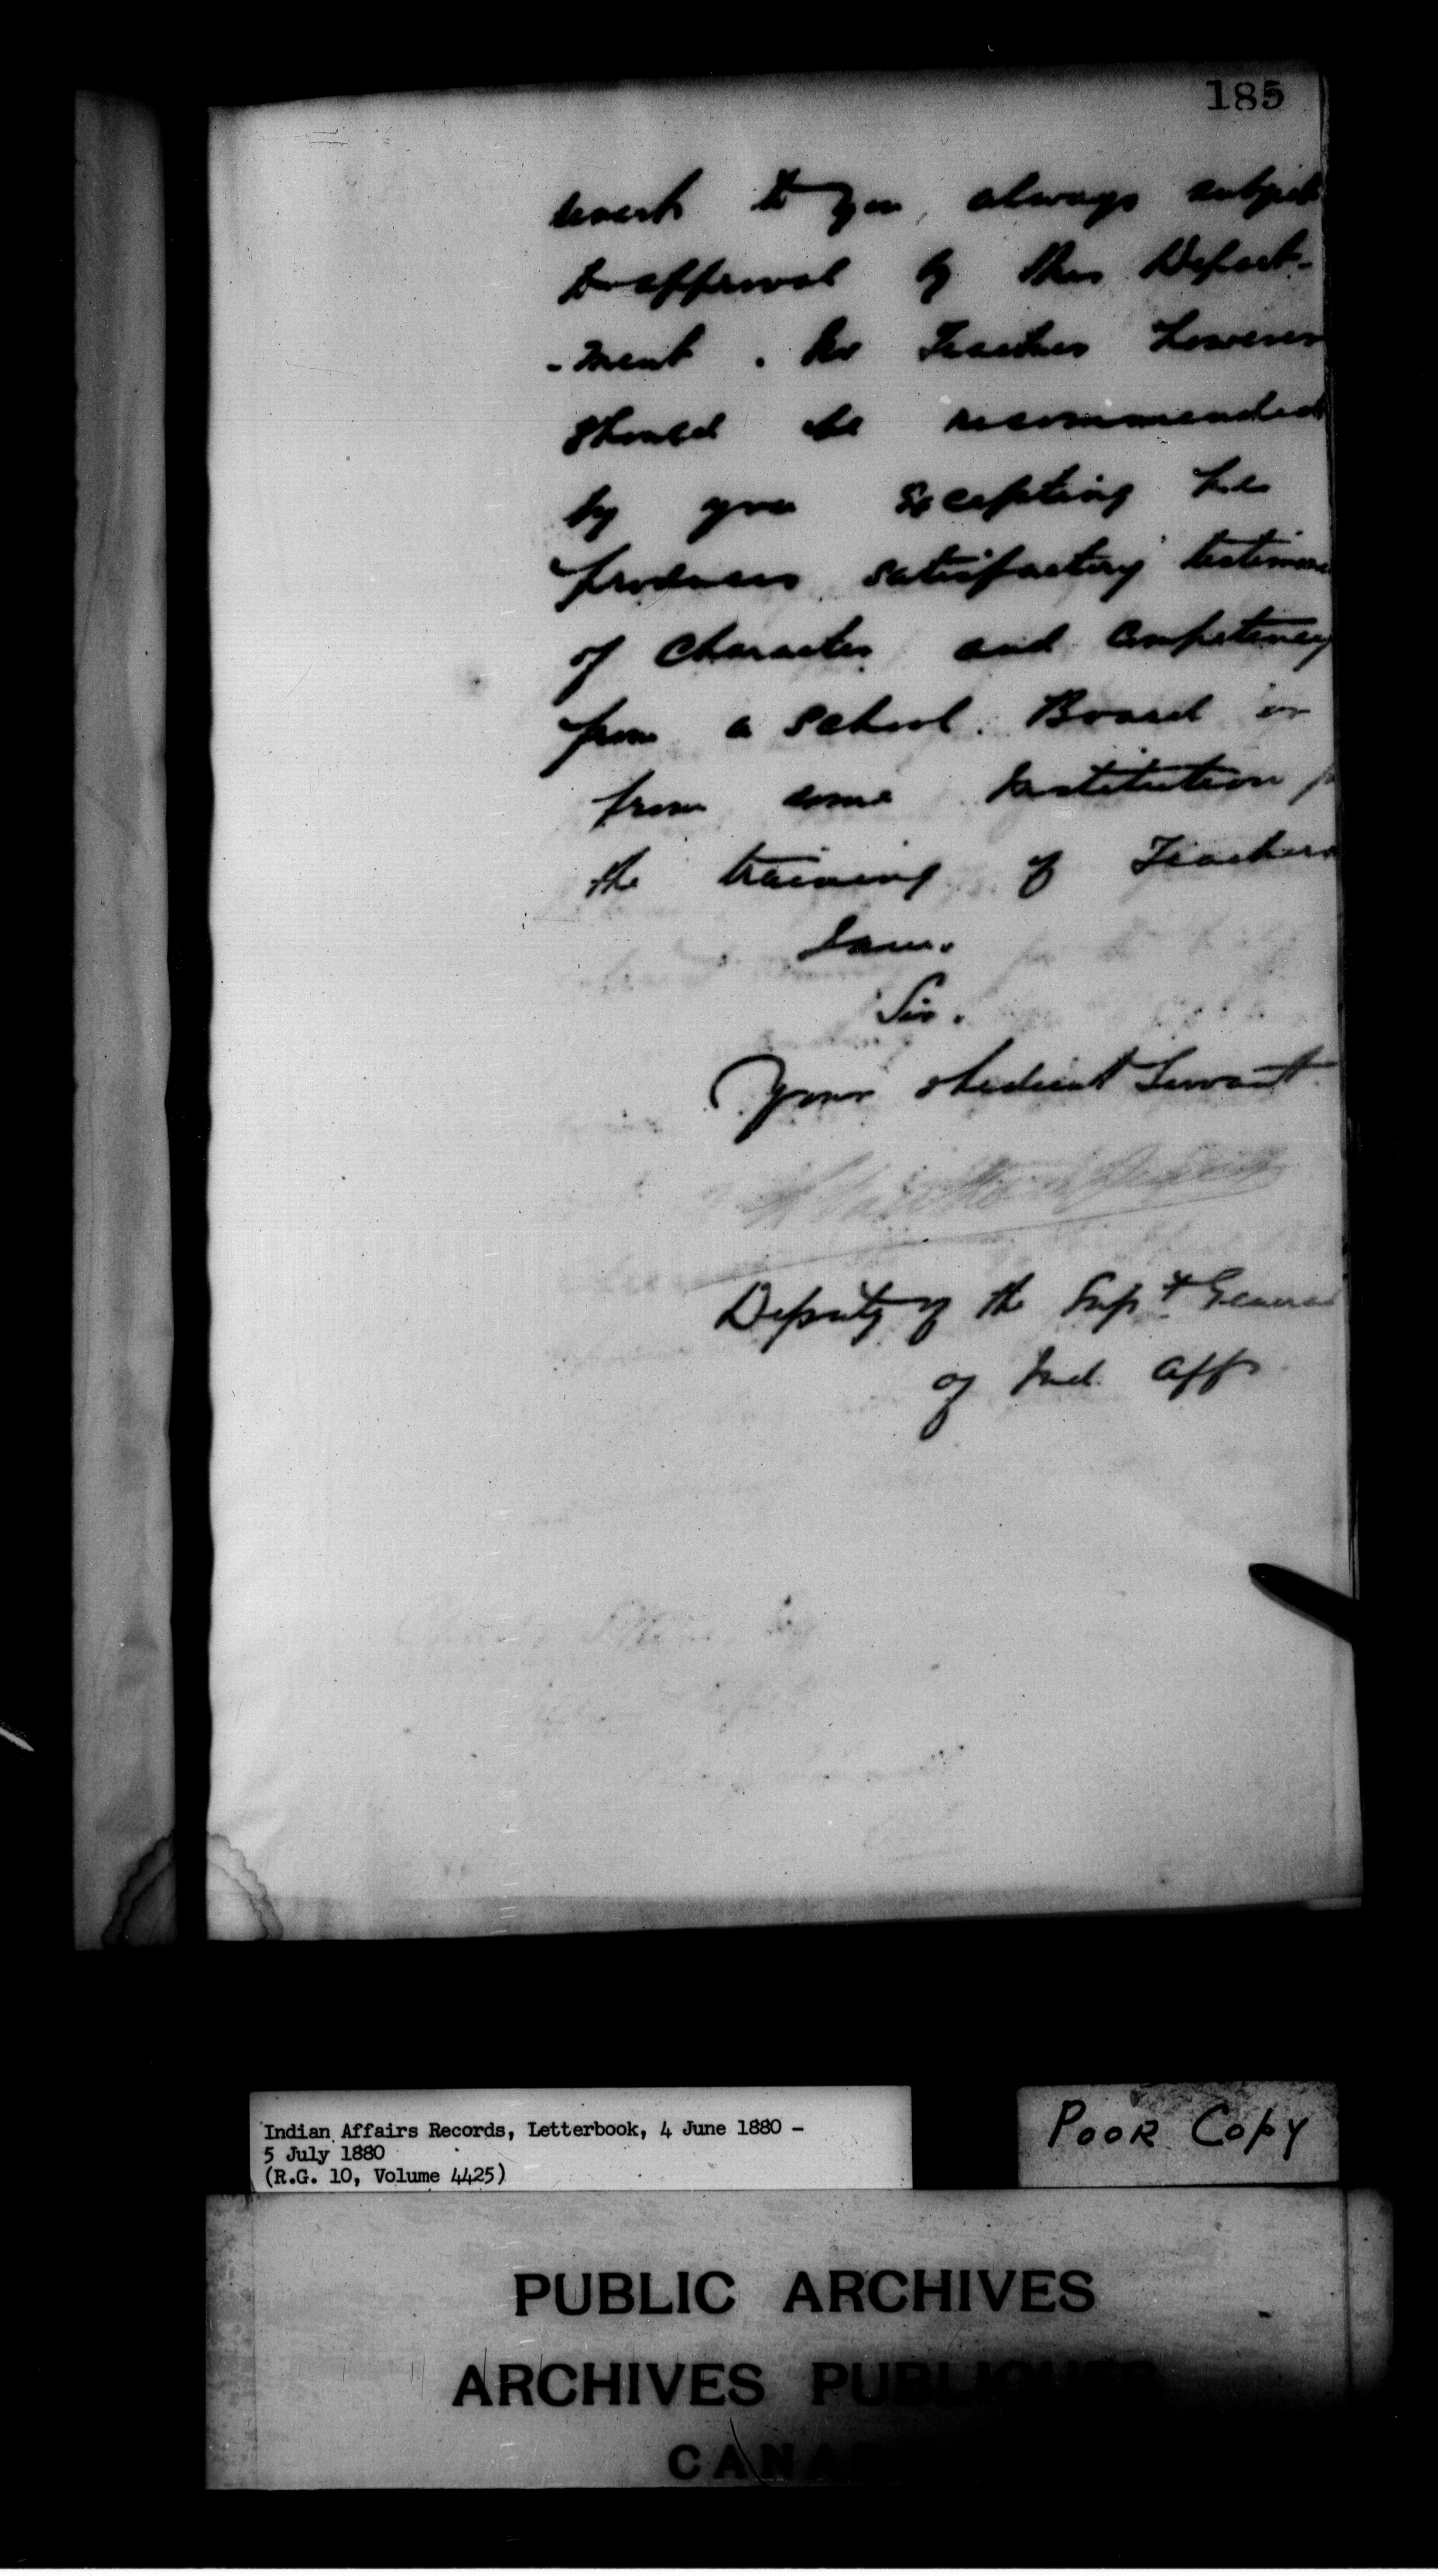 185
to you, always subject
to approval by this Depart-
-ment. No Teacher however
should be recommended
by you excepting he
produces satisfactory testimon
of character and competency
from a School Board or
from some Institution
the training of Teachers
I am.
Sir.
Your obedient Servant
Deputy of the Supt General
of Ind. Affs
Indian Affairs Records, Letterbook, 4 June 1880 -
5 July 1880
(R.G. 10, Volume 4425)
POOR COPY
PUBLIC ARCHIVES
ARCHIVES PUBLIQUES
CANA